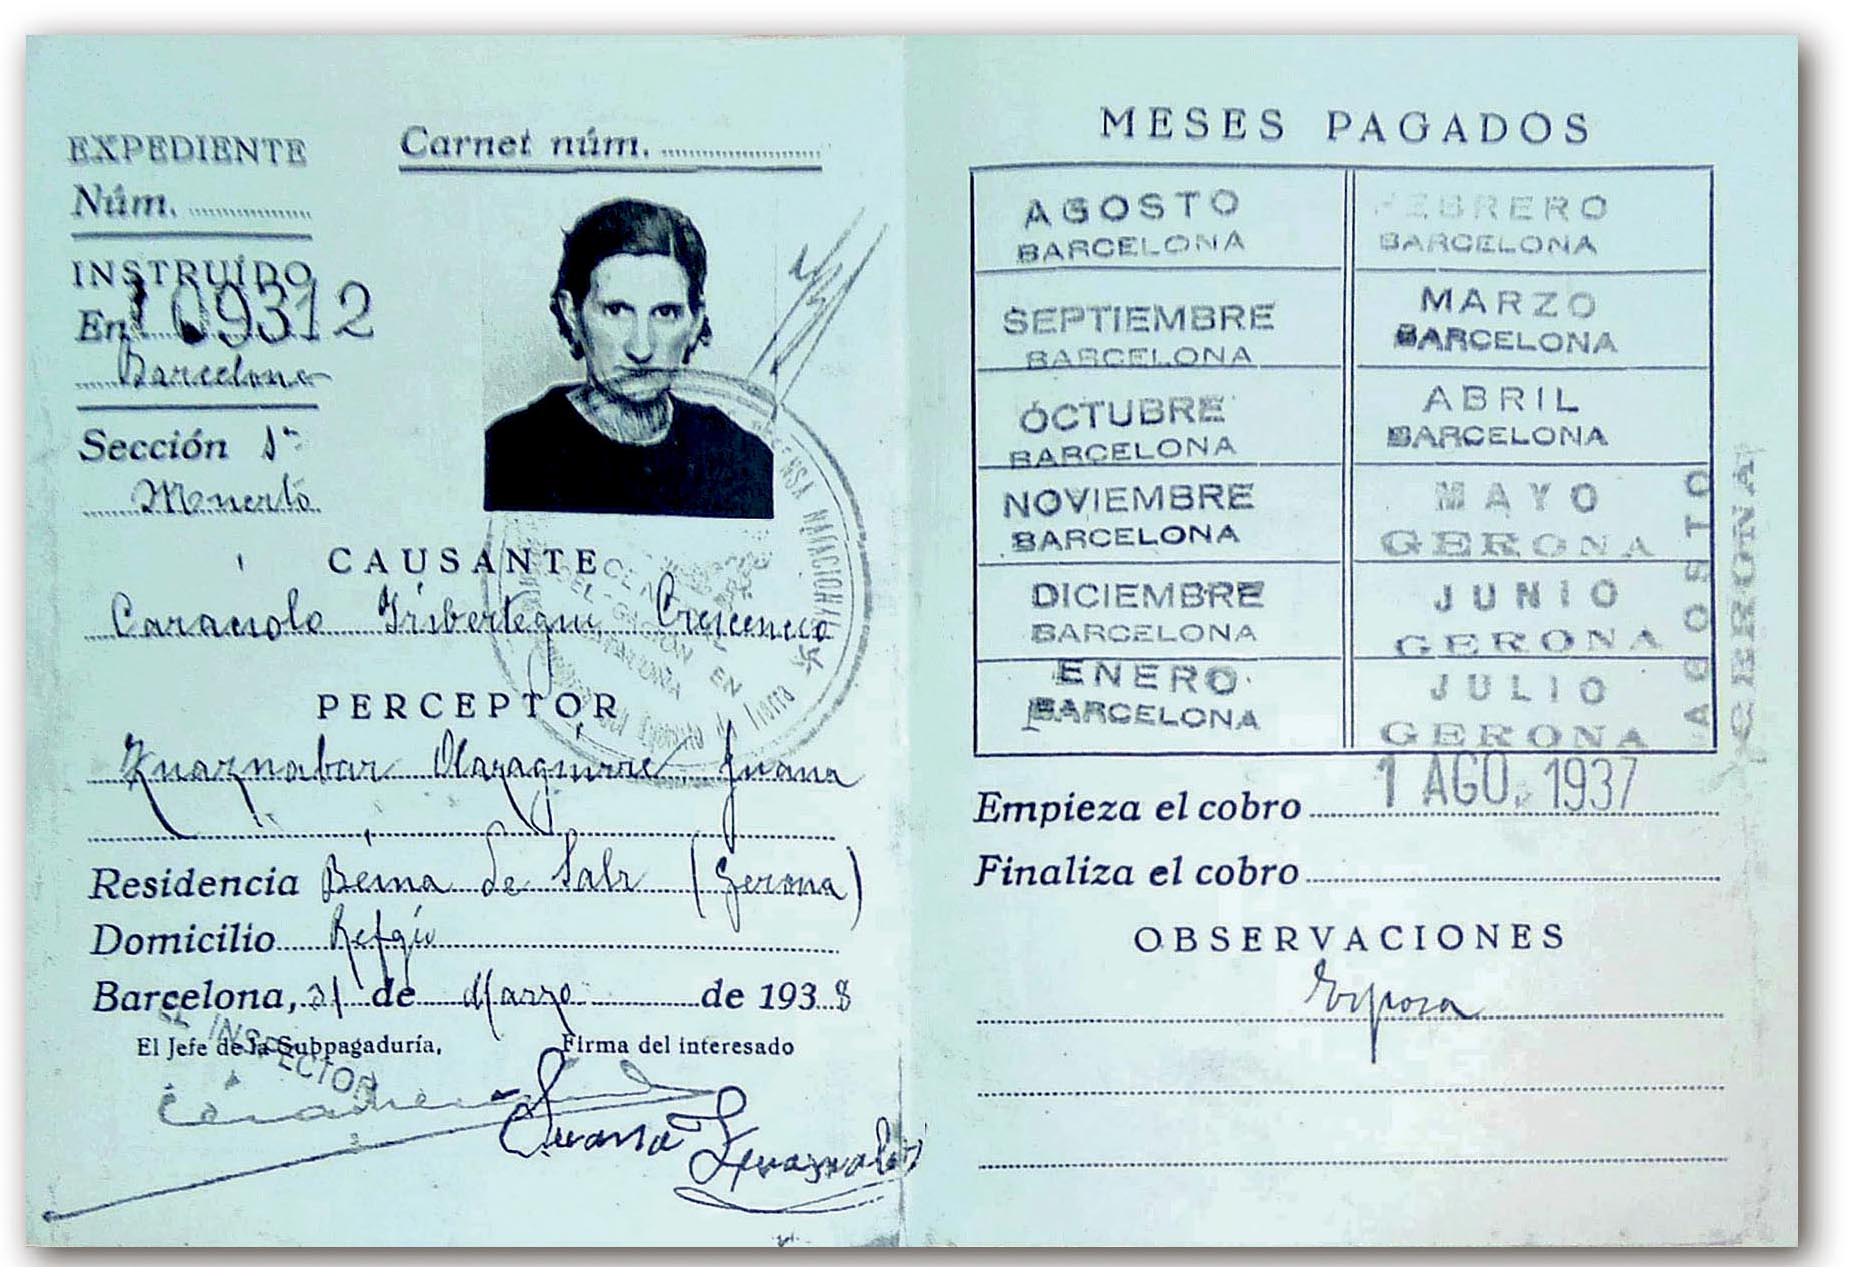 EXPEDIENTE
Núm.
INSTRUÍDO
En 109312
Barcelona
Sección 1ª
Muerto
Carnet núm.
CAUSANTE
Iribertegui Crescencio
PERCEPTOR
Zuaznabar Olazaguirre Juana
Residencia de Salt (Gerona)
Domicilio
Barcelona, 31 de Marzo de 1938
El Jefe de la Subpagaduría,
Firma del interesado
EL INSPECTOR
Juana Zuaznabar
MESES PAGADOS
AGOSTO
BARCELONA
SEPTIEMBRE
BARCELONA
OCTUBRE
BARCELONA
NOVIEMBRE
BARCELONA
DICIEMBRE
BARCELONA
ENERO
BARCELONA
FEBRERO
BARCELONA
MARZO
BARCELONA
ABRIL
BARCELONA
MAYO
GERONA
JUNIO
GERONA
JULIO
GERONA
AGOSTO
GERONA
Empieza el cobro 1 AGO. 1937
Finaliza el cobro
OBSERVACIONES
Esposa